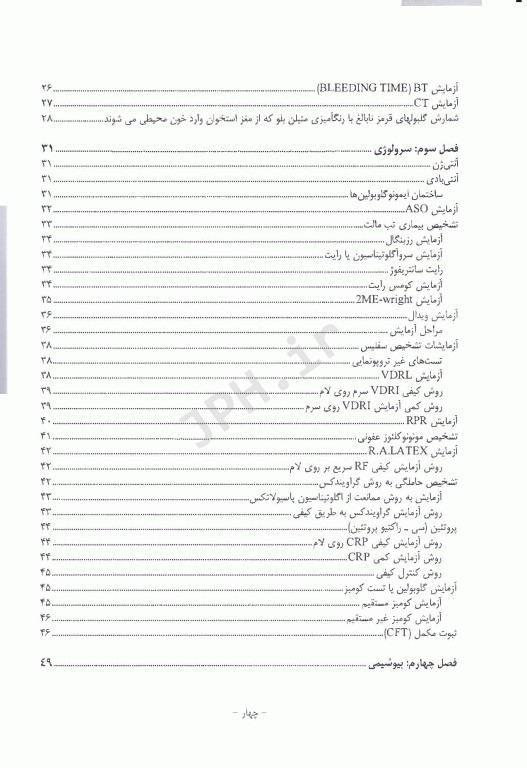 آزمایش BT (BLEEDING TIME) ۲۶
آزمایش CT ۲۷
شمارش گلبولهای قرمز نابالغ با رنگ‌آمیزی متیلن بلو که از مغز استخوان وارد خون محیطی می شوند ۲۸
فصل سوم: سرولوژی ۳۱
آنتی‌ژن ۳۱
آنتی‌بادی ۳۱
ساختمان ایمونوگلوبولین‌ها ۳۱
آزمایش ASO ۳۲
تشخیص بیماری تب مالت ۳۳
آزمایش رزبنگال ۳۴
آزمایش سروآگلوتیناسیون یا رایت ۳۴
رایت سانتریفوژ ۳۴
آزمایش کومس رایت ۳۴
آزمایش 2ME-wright ۳۵
آزمایش ویدال ۳۶
مراحل آزمایش ۳۶
آزمایشات تشخیص سفلیس ۳۸
تست‌های غیر تروپونمایی ۳۸
آزمایش VDRL ۳۸
روش کیفی VDRI سرم روی لام ۳۹
روش کمی آزمایش VDRI روی سرم ۳۹
آزمایش RPR ۴۰
تشخیص مونونوکلئوز عفونی ۴۱
آزمایش R.A.LATEX ۴۲
روش آزمایش کیفی RF سریع بر روی لام ۴۲
تشخیص حاملگی به روش گراویندکس ۴۲
آزمایش به روش ممانعت از اگلوتیناسیون پاسیولاتکس ۴۳
روش آزمایش گراویندکس به طریق کیفی ۴۳
پروتئین (سی ـ راکتیو پروتئین) ۴۴
روش آزمایش کیفی CRP روی لام ۴۴
روش آزمایش کمی CRP ۴۴
روش کنترل کیفی ۴۵
آزمایش گلوبولین یا تست کومبز ۴۵
آزمایش کومبز مستقیم ۴۵
آزمایش کومبز غیر مستقیم ۴۶
ثبوت مکمل (CFT) ۴۶
فصل چهارم: بیوشیمی ۴۹
- چهار -
JPH.ir